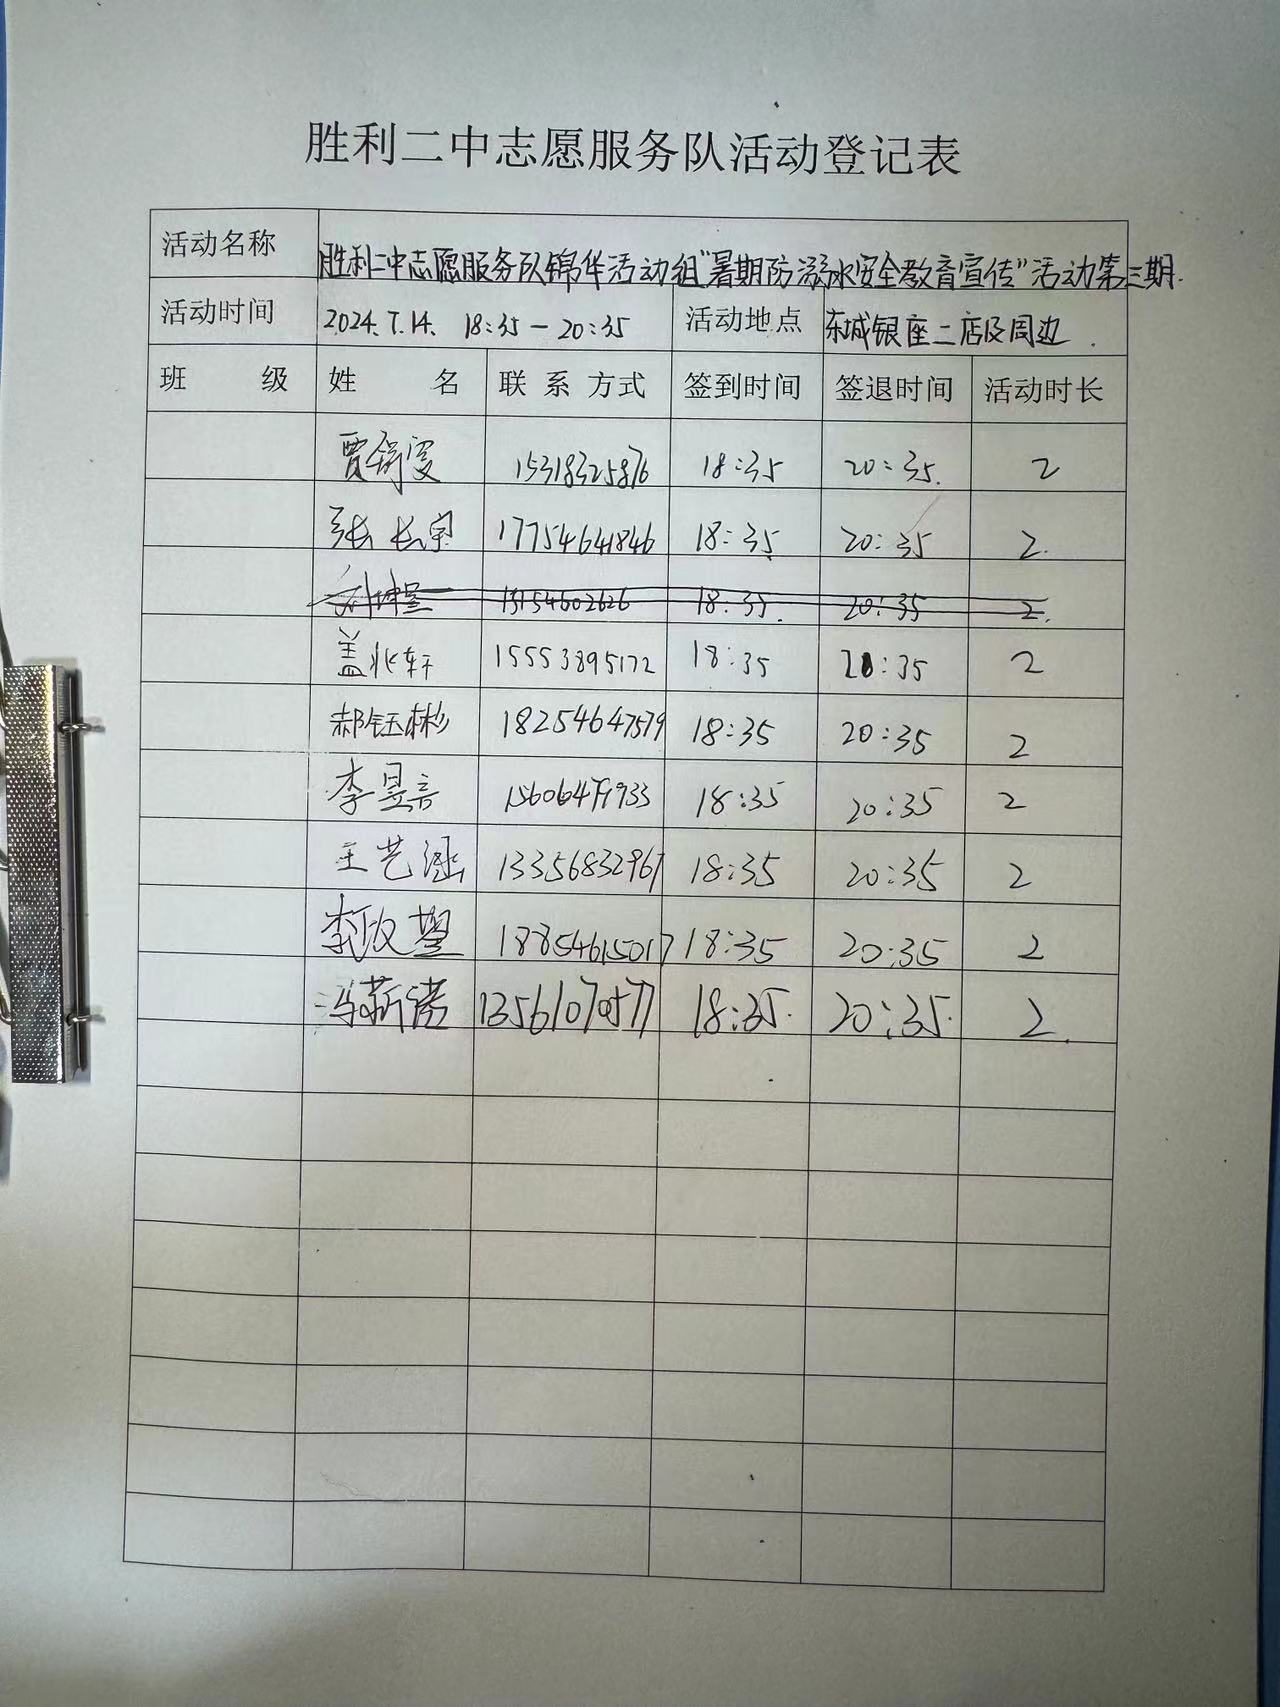 胜利二中志愿服务队活动登记表
活动名称 胜利二中志愿服务队锦华活动组"暑期防溺水安全教育宣传"活动第三期.
活动时间 2024.7.14. 18:35－20:35 活动地点 东城银座二店及周边.
班 级 姓 名 联系方式 签到时间 签退时间 活动时长
贾 15318325876 18:35 20:35. 2
张长宇 17754641846 18:35 20:35 2.
15154602626 18:35. 20:35 2.
盖兆轩 15553895172 18:35 20:35 2
郝钰彬 18254647579 18:35 20:35 2
李昱言 18:35 20:35 2
王艺涵 13356832967 18:35 20:35 2
李玟瑿 18854615017 18:35 20:35 2
冯薪诺 13561070577 18:35. 20:35. 2.